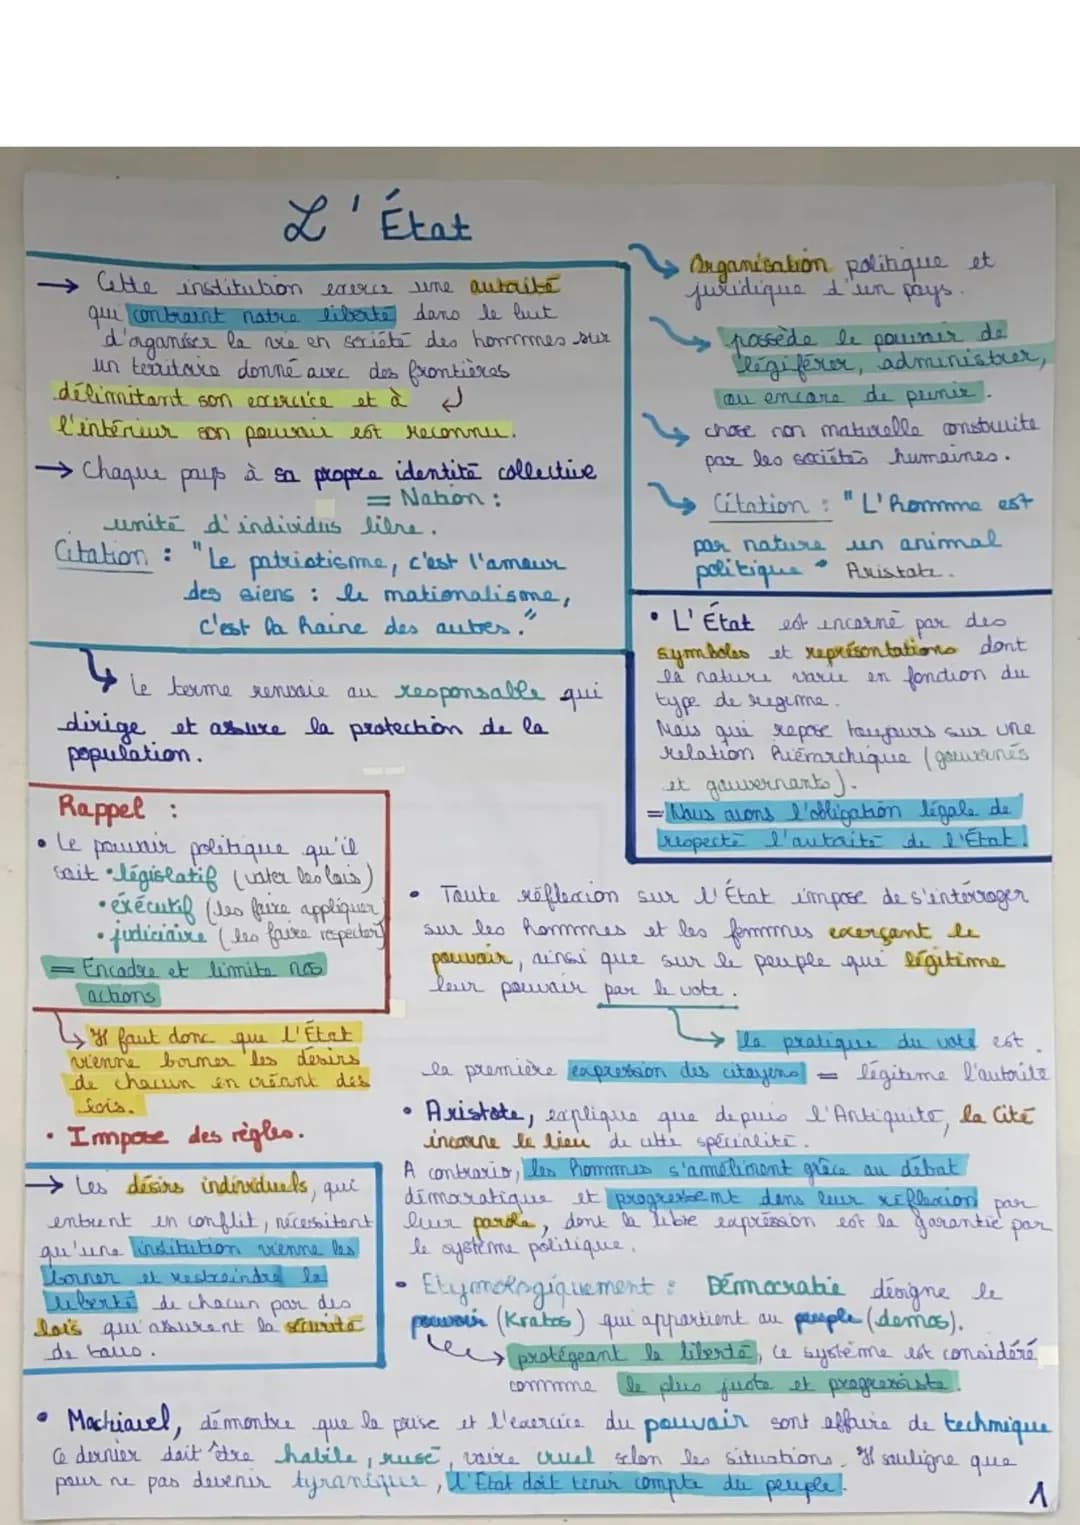 L'État
→ Cette institution exerce une autorité
qui contraint notre liberté dans le but
d'organiser la vie en société des hommes sur
un territoire donné avec des frontières
délimitant son exercice et à
l'intérieur son pouvoir est reconnu.
→ Chaque pays à sa propre identité collective
= Nation :
unité d'individus libre.
Citation : "Le patriotisme, c'est l'amour
des siens : le nationalisme,
c'est la haine des autres."
Le terme renvoie au responsable qui
dirige et assure la protection de la
population.
Organisation politique et
juridique d'un pays.
possède le pouvoir de
légiférer, administrer,
ou encore de punir.
chose non naturelle construite
par les sociétés humaines.
Citation : "L'homme est
par nature un animal
politique" Aristote.
• L'État est incarné par des
symboles et représentations dont
la nature varie en fonction du
type de regime.
Mais qui repose toujours sur une
relation hiérarchique (gouvernés
et gouvernants).
= Nous avons l'obligation légale de
respecté l'autorité de l'État.
Rappel :
• Le pouvoir politique qu'il
soit • législatif (voter les lois)
• éxécutif (les faire appliquer)
• judiciaire (les faire respecter)
= Encadre et limite nos
actions
Il faut donc que l'État
vienne borner les désirs
de chacun en créant des
lois.
• Impose des règles.
→ Les désirs individuels, qui
entrent en conflit, nécessitent
qu'une institution vienne les
borner et restreindre la
liberté de chacun par des
lois qui assurent la sécurité
de tous.
• Toute réflexion sur l'État impose de s'intérroger
sur les hommes et les femmes exerçant le
pouvoir, ainsi que sur le peuple qui légitime
leur pouvoir par le vote.
→ la pratique du vote est
la première expression des citoyens = légitime l'autorité
• Aristote, explique que depuis l'Antiquité, la Cité
incarne le lieu de cette spécialité.
A contrario, les hommes s'améliorent grâce au débat
démocratique et progressent dans leur réflexion par
leur parole, dont la libre expression est la garantie par
le système politique.
• Etymologiquement : Démocratie désigne le
pouvoir (Kratos) qui appartient au peuple (demos).
→ protégeant la liberté, ce système est considéré
comme le plus juste et progressiste.
• Machiavel, démontre que la prise et l'exercice du pouvoir sont affaire de technique
Ce dernier doit être habile, rusé, voire cruel selon les situations. Il souligne que
pour ne pas devenir tyrannique, l'État doit tenir compte du peuple.
1